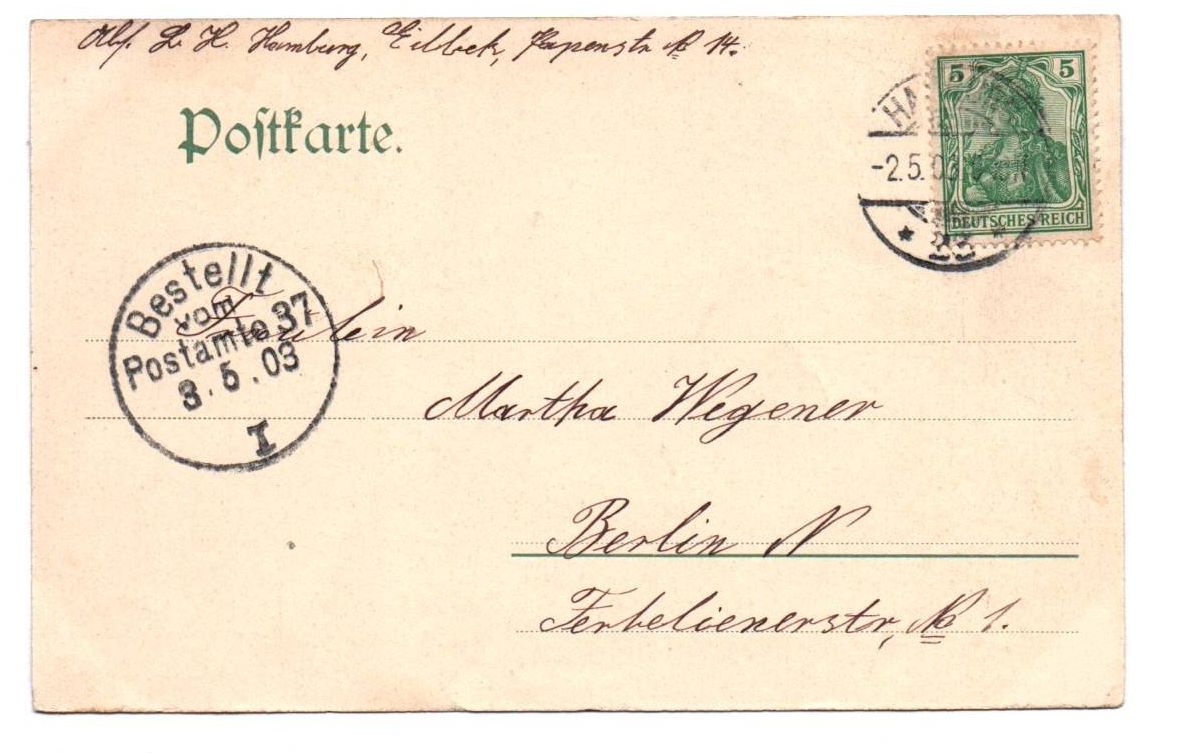 Abs. L. H. Hamburg, Eilbek, Papenstr No 14.
Postkarte.
5 5
-2.5.03
DEUTSCHES REICH
* 23 *
Bestellt
vom
Postamte 37
3.5.03
I
Fräulein
Martha Wegener
Berlin N
Ferbelienerstr, No 1.